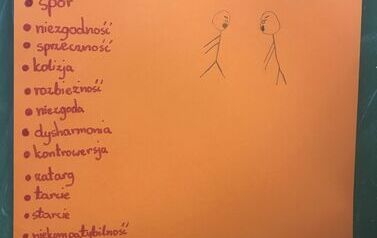 • spór
• niezgodność
• sprzeczność
• kolizja
• rozbieżność
• niezgoda
• dysharmonia
• kontrowersja
• zatarg
• tarcie
• starcie
• niekompatybilność